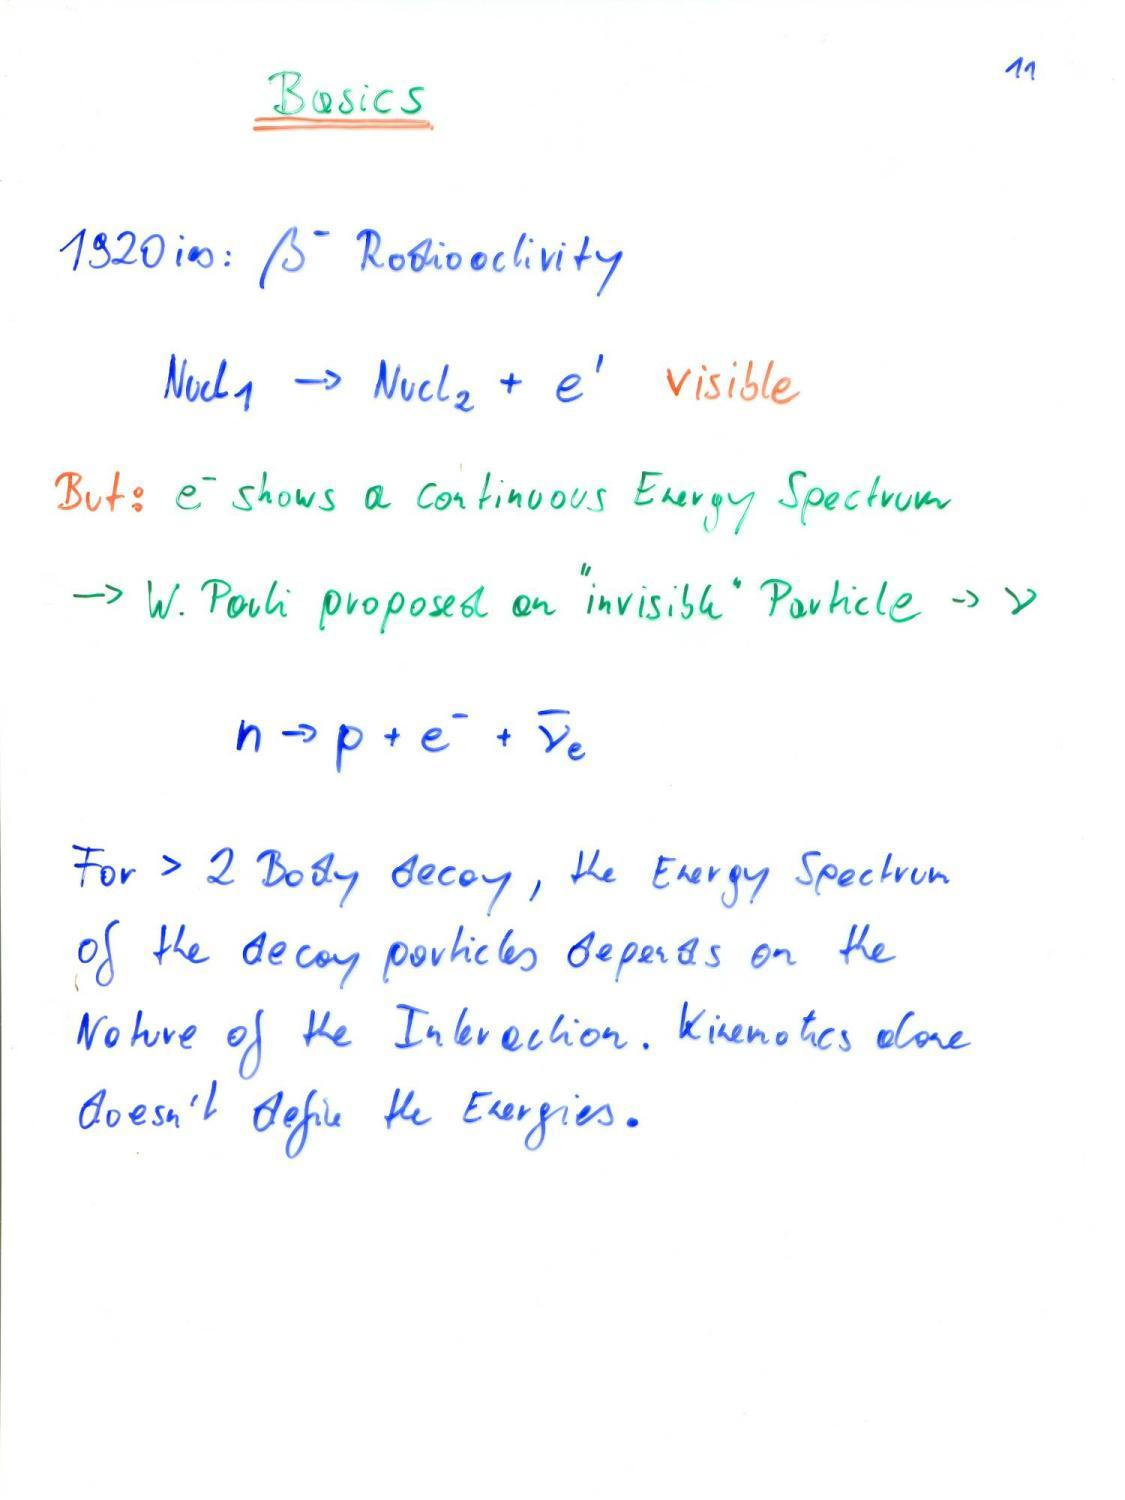 11
Basics
1920ies: β⁻ Radioactivity
Nucl₁ → Nucl₂ + e' visible
But: e⁻ shows a continuous Energy Spectrum
→ W. Pauli proposed an "invisible" Particle → ν
n → p + e⁻ + ν̄ₑ
For > 2 Body decay, the Energy Spectrum
of the decay particles depends on the
Nature of the Interaction. Kinematics alone
doesn't define the Energies.